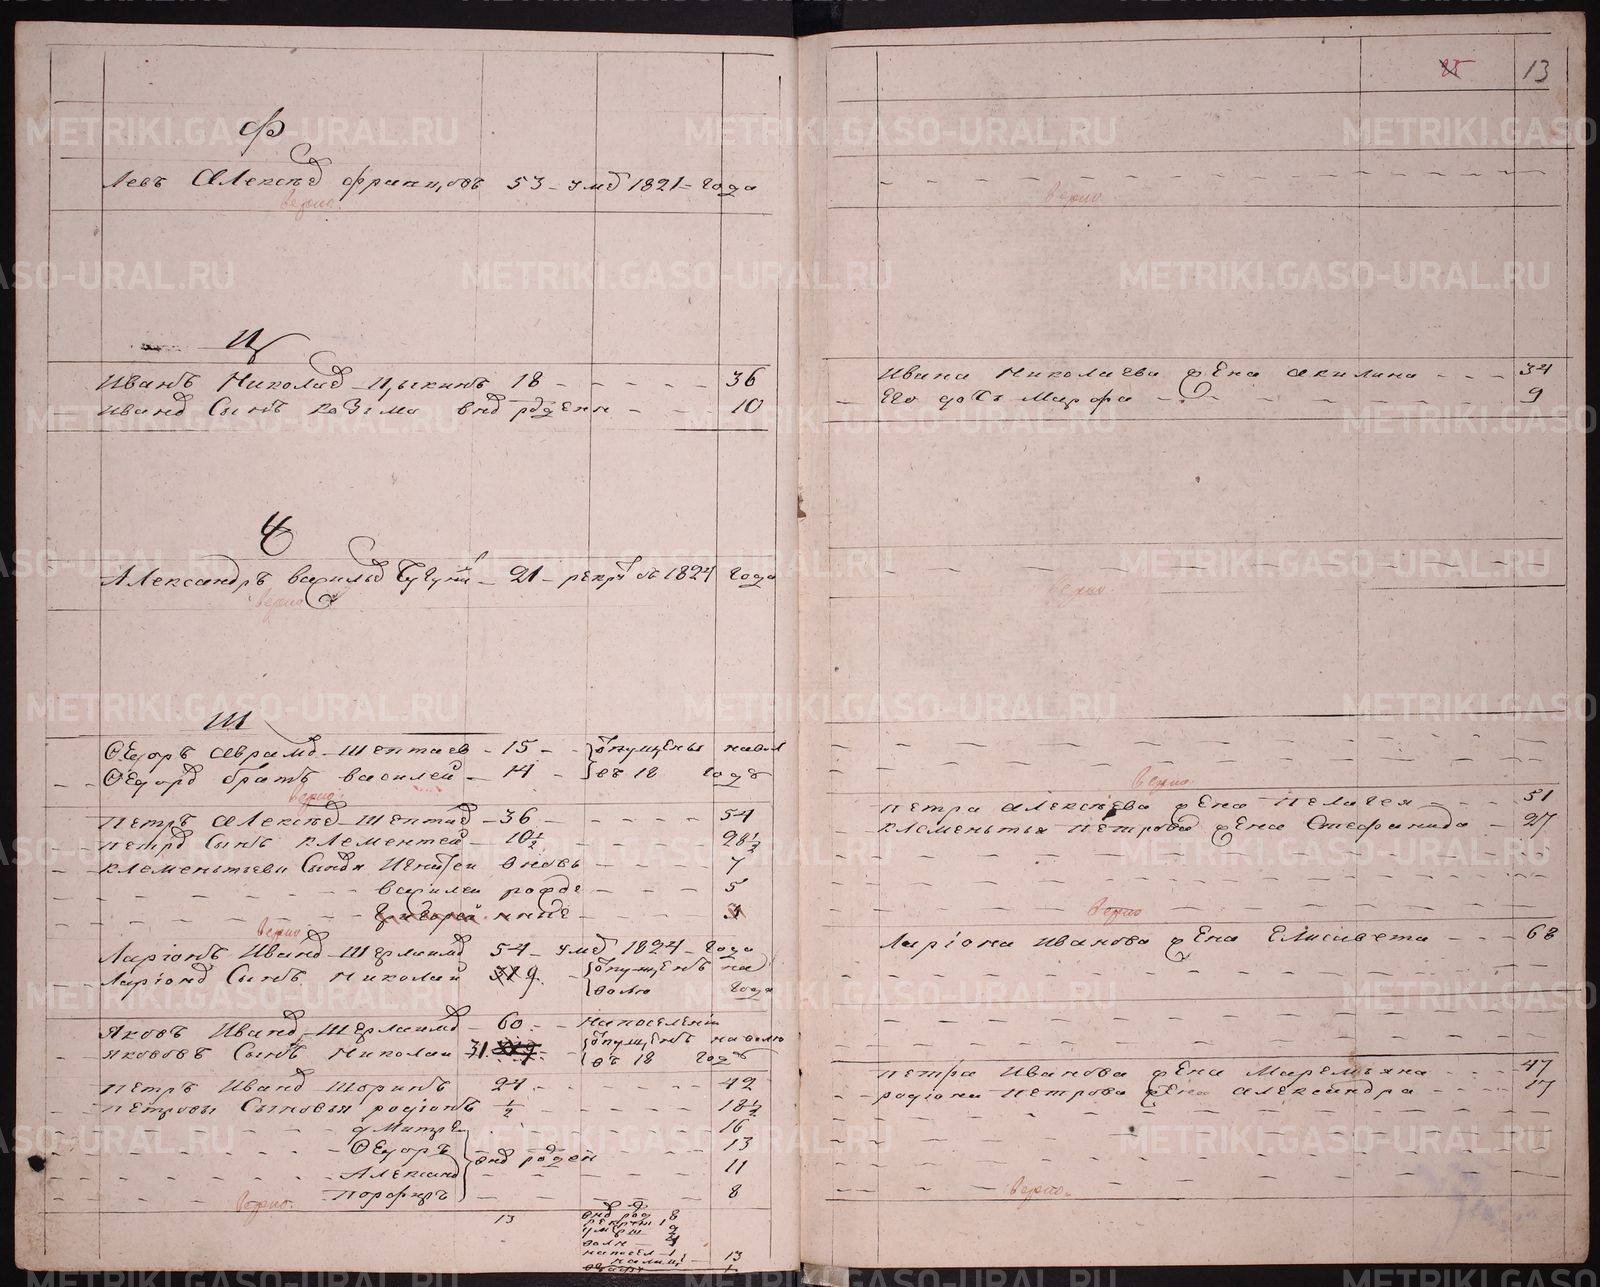 Ф
Левъ Алексѣв Францовъ 53 - умд 1821 - года
Верно.
Ц
Иванъ Николаев Цыкинъ 18 - - - - - 36
Иванов Сынъ Козьма внов рожден - - - 10
Ч
Александръ василье Чугуни - 21 - рекру въ 1824 года
Верно
Ш
Ѳедоръ Аврамо Шептаев - 15 - - отпущены навол
Ѳедоров братъ василей - 14 - въ 18 годъ
Верно.
Петръ Алексѣе Шептае - 36 - - - - - 54
Петров Сынъ Клементей - 10½ - - - - 28½
Клементьеви Сынвя Игнатей вновь - - - 7
василей рожде - - - 5
Григорей нные - - - 3
Верно.
Ларіонъ Иванов Шерлаимо 54 - умд 1824 - года
Ларіонов Сынъ Николай 9. - отпущенъ на
волю года
Яковъ Иванов Шерлаимо - 60 - - напоселеніи
Якововъ Сынъ Николаи 31. - отпущенъ наволю
въ 18 годъ
Петръ Иванов Шоринъ 24 - - - - - 42
Петровы Сыновья родіонъ ½ - - - - 18½
дмитре - - - 16
Ѳедоръ внов рожден 13
Александ 11
Порфиръ 8
Верно.
13
внов рож 8
рекруты 1
умерш 2
волн
напосел - 1
налице 13
13
Верно
Ивана Николаева жена Акилина - - - 34
Его дочь Марфа - - - 9
Верно
Верно.
Петра Алексѣева жена Пелагея - - - 51
Клементья Петрова жена Стефанида - 27
Верно
Ларіона Иванова жена Елисавета - - - 68
Петра Иванова жена Маремьяна - - - 47
Родіона Петрова жена Александра - - - 17
Верно.
METRIKI.GASO-URAL.RU